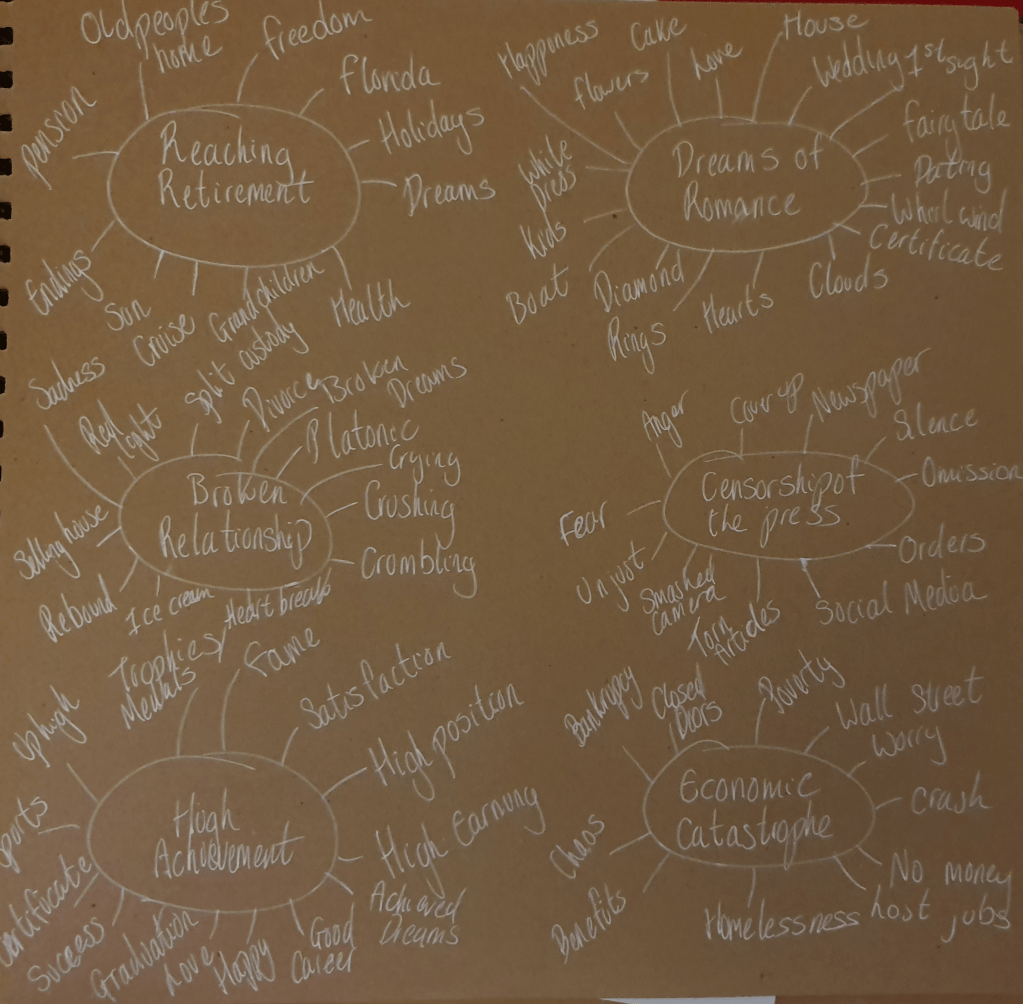 Old peoples
home
freedom
Florida
Holidays
Dreams
Health
Grandchildren
Cruise
Sun
Endings
pension
Reaching
Retirement
Happiness
flowers
Cake
Love
House
Wedding
1st sight
fairytale
Dating
Whirl wind
Certificate
Clouds
Hearts
Diamond
Rings
Boat
Kids
White
Dress
Dreams of
Romance
Sadness
Red
light
Split custody
Divorce
Broken
Dreams
Platonic
Crying
Crushing
Crombling
Heart break
Ice cream
Rebound
Selling house
Broken
Relationship
Anger
Cover up
Newspaper
Silence
Omission
Orders
Social Media
Torn
Articles
Smashed
Camera
Unjust
Fear
Censorship of
the press
Trophies/
Medals
Fame
Satisfaction
High position
High Earning
Achieved
Dreams
Good
Career
Happy
Love
Graduation
Success
Certificate
Sports
Up high
High
Achievement
Bankrupcy
Closed
Doors
Poverty
Wall Street
Worry
Crash
No money
Lost jobs
Homelessness
Benefits
Chaos
Economic
Catastrophe